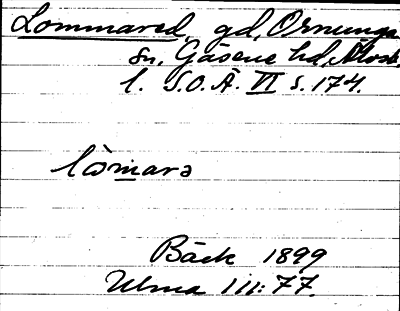 Lommared, gd, Ornunga
sn, Gäsene hd, Älvsb.
l. S.O.Ä. VI s. 174.
lòmarə
Bäck 1899
Ulma 111:77.